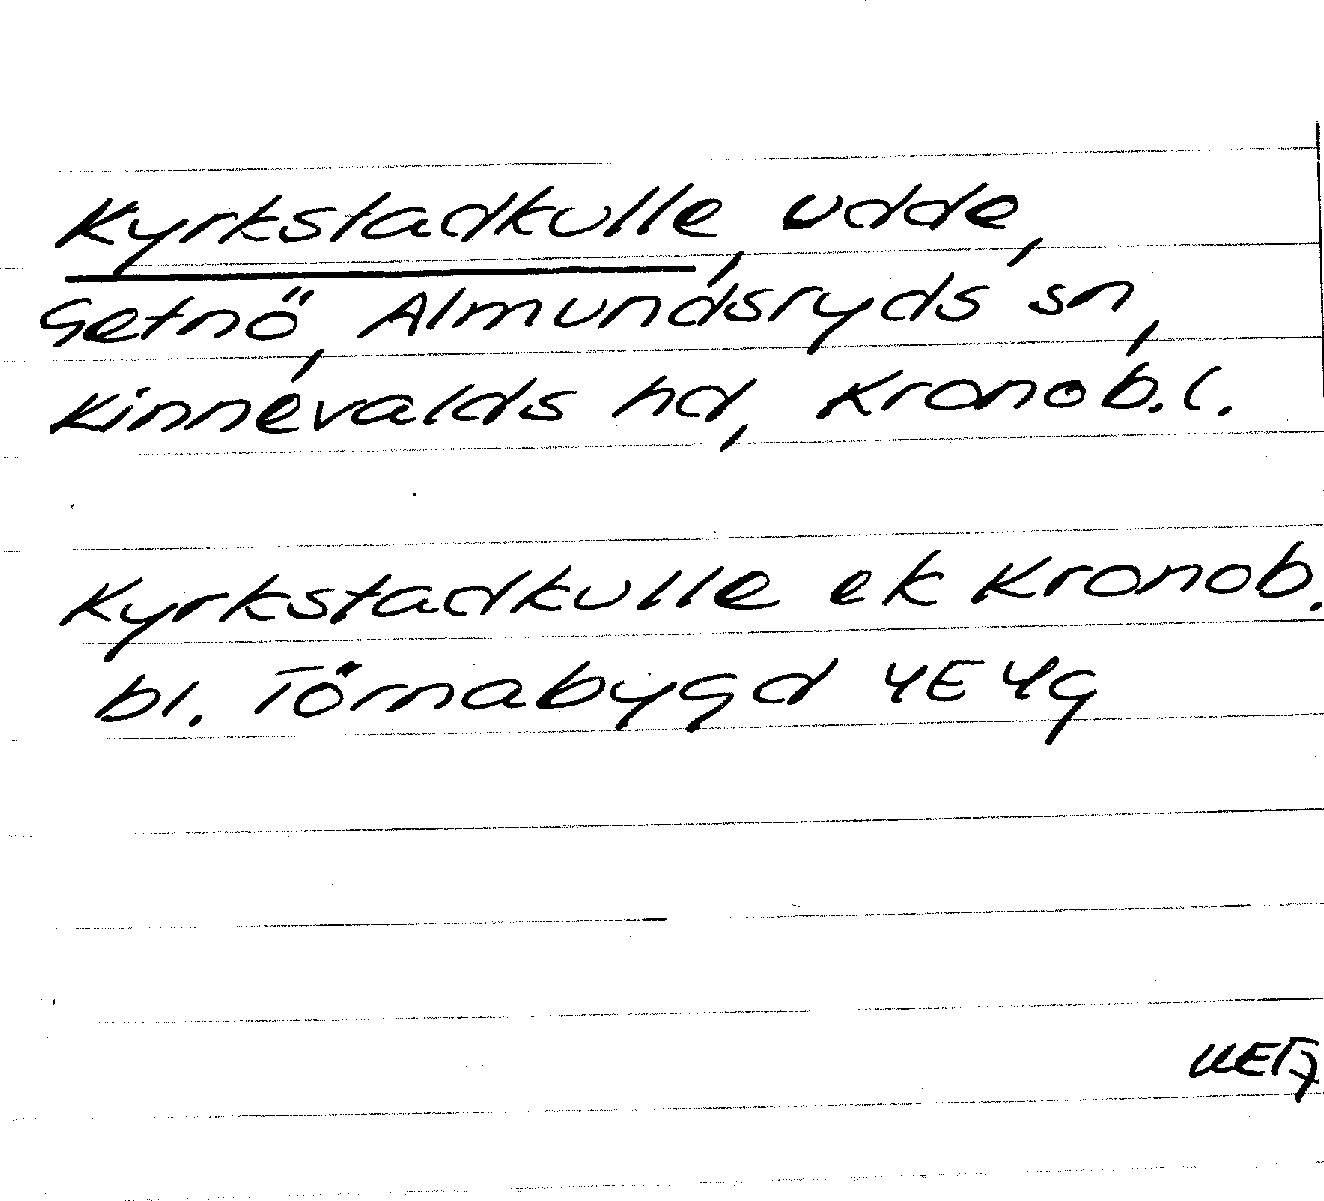 Kyrkstadkulle, udde,
Getnö, Almundsryds sn,
Kinnevalds hd, Kronob.l.
Kyrkstadkulle ek Kronob.
bl. Törnabygd 4E4g